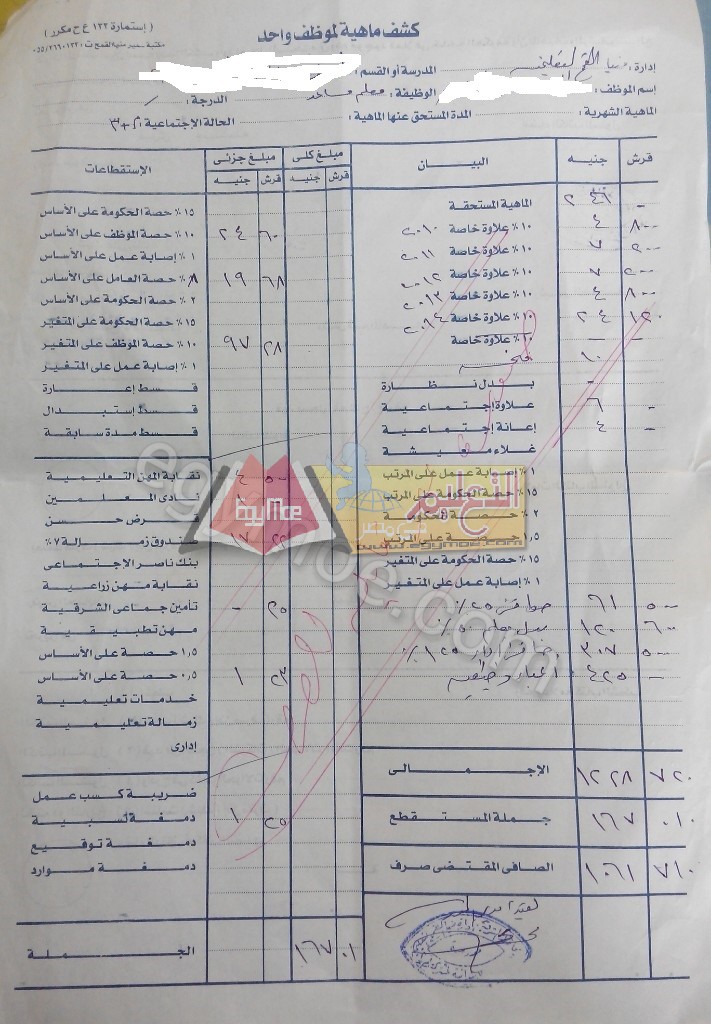 ( إستمارة ١٣٢ ع ح مكرر )
كشف ماهية لموظف واحد
إدارة : منيا القمح التعليمية
المدرسة أو القسم :
إسم الموظف :
الوظيفة : معلم مساعد
الدرجة :
الماهية الشهرية :
المدة المستحق عنها الماهية :
الحالة الإجتماعية : ٣+٥
قرش جنيه البيان مبلغ كلى مبلغ جزئى الإستقطاعات
قرش جنيه قرش جنيه
- ٢٤٦ الماهية المستحقة
١٥٪ حصة الحكومة على الأساس
٨٠٠ ٤ ١٠٪ علاوة خاصة ٢٠١٠
٦٠ ٢٤ ١٠٪ حصة الموظف على الأساس
٢٠٠ ٧ ١٠٪ علاوة خاصة ٢٠١١
١٪ إصابة عمل على الأساس
٢٠٠ ٧ ١٠٪ علاوة خاصة ٢٠١٢
٦٨ ١٩ ٨٪ حصة العامل على الأساس
٨٠٠ ٤ ١٠٪ علاوة خاصة ٢٠١٣
٢٪ حصة الحكومة على الأساس
١٢٠ ٢٤ ١٠٪ علاوة خاصة ٢٠١٤
١٥٪ حصة الحكومة على المتغير
- - ١٠٪ علاوة خاصة
٢٨ ٩٧ ١٠٪ حصة الموظف على المتغير
١٠
١٪ إصابة عمل على المتغير
- بدل نظارة
قسط إعارة
- ٦ علاوة إجتماعية
قسط إستبدال
- ٤ إعانة إجتماعية
قسط مدة سابقة
غلاء معيشة
١٪ إصابة عمل على المرتب
٥٠ نقابة المهن التعليمية
١٥٪ حصة الحكومة على المرتب
نادى المعلمين
٢٪ حصة الحكومة
قرض حسن
حصة على المرتب
١٧ صندوق زمالة ٧٪
١٥٪ حصة الحكومة على المتغير
بنك ناصر الإجتماعى
١٪ إصابة عمل على المتغير
نقابة مهن زراعية
٥٠٠ ٦١ حوافز ٢٥٪
٢٥ - تأمين جماعى الشرقية
٦٠٠ ١٢٠ بدل معلم ٥٠٪
مهن تطبيقية
٥٠٠ ٣٠٧ ١٢٥٪
١,٥ حصة على الأساس
- ٤٢٥ أعباء وظيفية
٢٣ ١ ٠,٥ حصة على الأساس
خدمات تعليمية
زمالة تعليمية
إدارى
٧٢٠ ١٢٢٨ الإجمالى
ضريبة كسب عمل
٠١٠ ١٦٧ جملة المستقطع
٢٥ ١ دمغة نسبية
دمغة توقيع
٧١٠ ١٠٦١ الصافى المقتضى صرف
دمغة موارد
٠١ ١٦٧ الجملة
التعليم
فى مصر
www.egymoe.com
EgyMoe
egymoe.com